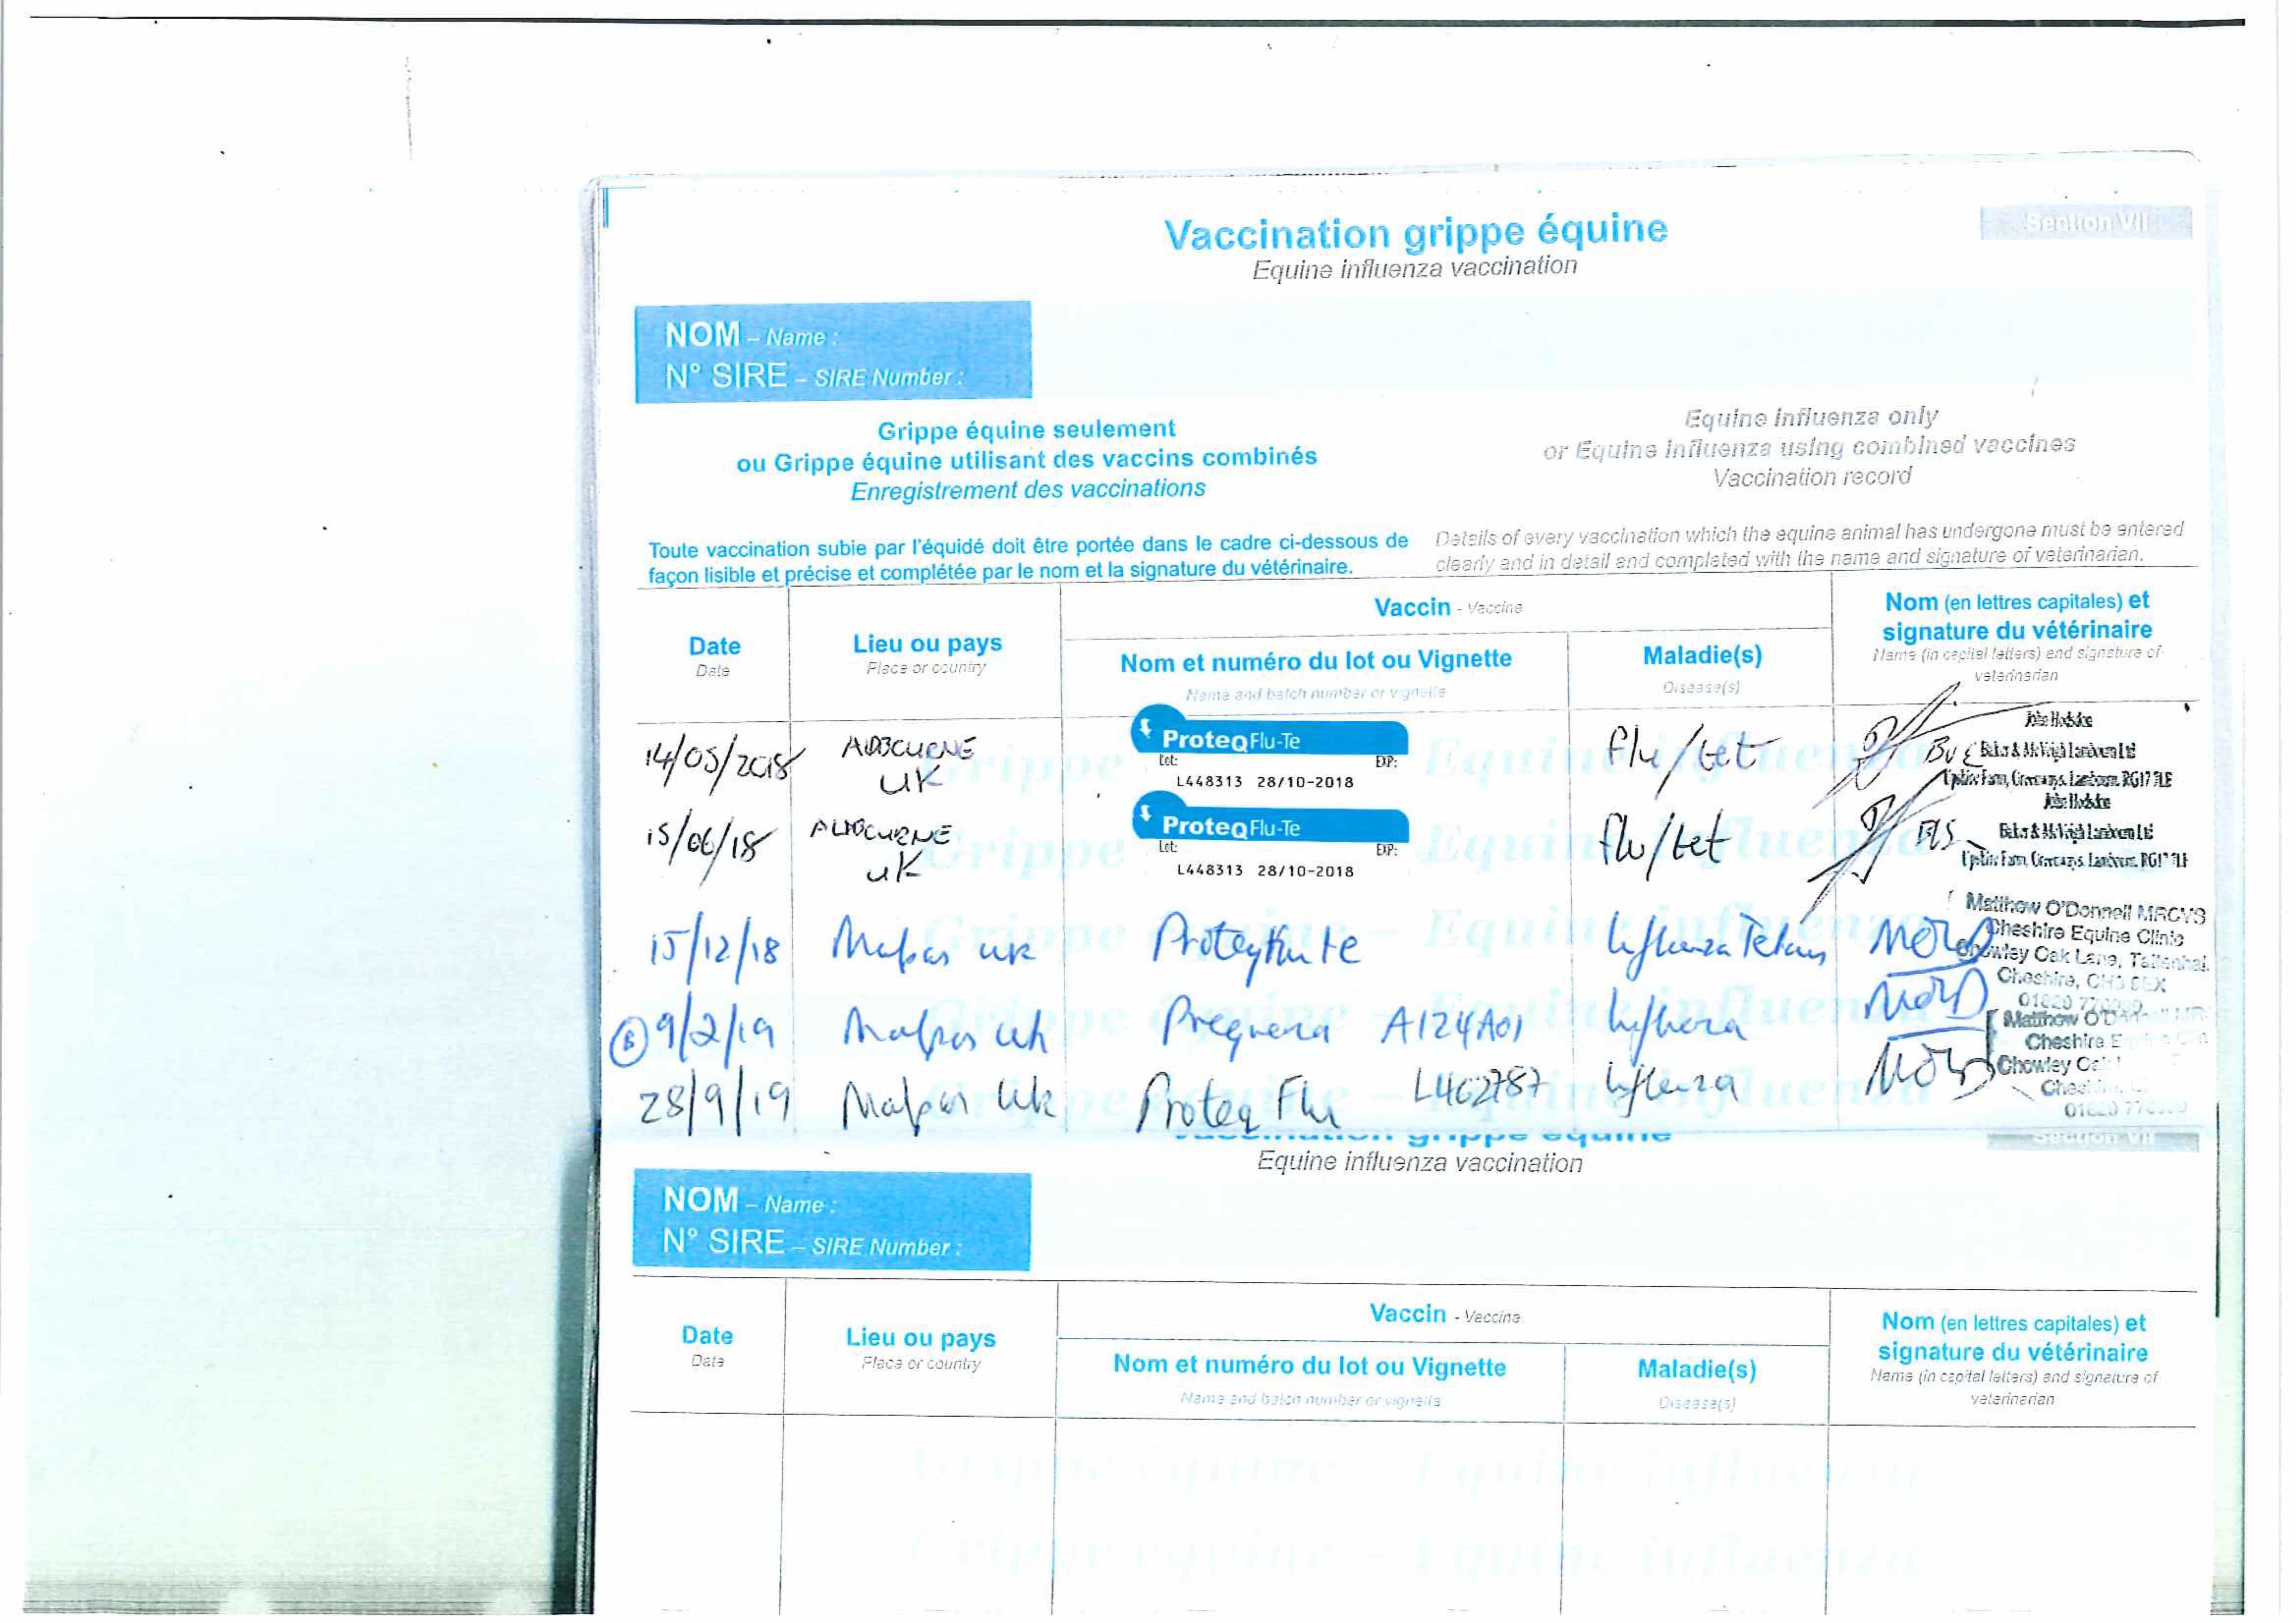 Vaccination grippe équine
Section VII
Equine influenza vaccination
NOM – Name :
N° SIRE – SIRE Number :
Grippe équine seulement
ou Grippe équine utilisant des vaccins combinés
Enregistrement des vaccinations
Equine Influenza only
or Equine influenza using combined vaccines
Vaccination record
Toute vaccination subie par l'équidé doit être portée dans le cadre ci-dessous de
façon lisible et précise et complétée par le nom et la signature du vétérinaire.
Details of every vaccination which the equine animal has undergone must be entered
clearly and in detail and completed with the name and signature of veterinarian.
Date
Date
Lieu ou pays
Place or country
Vaccin - Vaccine
Nom et numéro du lot ou Vignette
Name and batch number or vignette
Maladie(s)
Disease(s)
Nom (en lettres capitales) et
signature du vétérinaire
Name (in capital letters) and signature of
veterinarian
14/05/2018
UK
ProteqFlu-Te
Lot: EXP:
L448313 28/10-2018
Flu/tet
15/06/18
UK
ProteqFlu-Te
Lot: EXP:
L448313 28/10-2018
Flu/tet
15/12/18 Malpas UK
Influenza
Matthew O'Donnell MRCVS
Cheshire Equine Clinic
Chowley Oak Lane, Tattenhall
Cheshire, CH3 9EX
9/2/19 Malpas UK A124A01
Matthew
Cheshire
Chowley
28/9/19 Malpas UK Proteq Flu L462787 Influenza
Section VII
Equine influenza vaccination
NOM – Name :
N° SIRE – SIRE Number :
Date
Date
Lieu ou pays
Place or country
Vaccin - Vaccine
Nom et numéro du lot ou Vignette
Name and batch number or vignette
Maladie(s)
Disease(s)
Nom (en lettres capitales) et
signature du vétérinaire
Name (in capital letters) and signature of
veterinarian
Grippe équine – Equine influenza
Grippe équine – Equine influenza